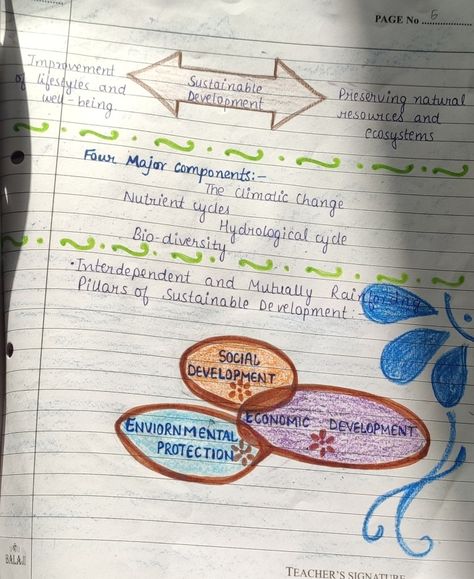 PAGE No 5
Improvement
of lifestyles and
well-being.
Sustainable
Development
Preserving natural
resources and
ecosystems
Four Major components:-
The climatic Change
Nutrient cycles
Hydrological cycle
Bio-diversity
• Interdependent and Mutually
Pillars of Sustainable Development:-
SOCIAL
DEVELOPMENT
ECONOMIC DEVELOPMENT
ENVIORNMENTAL
PROTECTION
BALAJI
TEACHER'S SIGNATURE